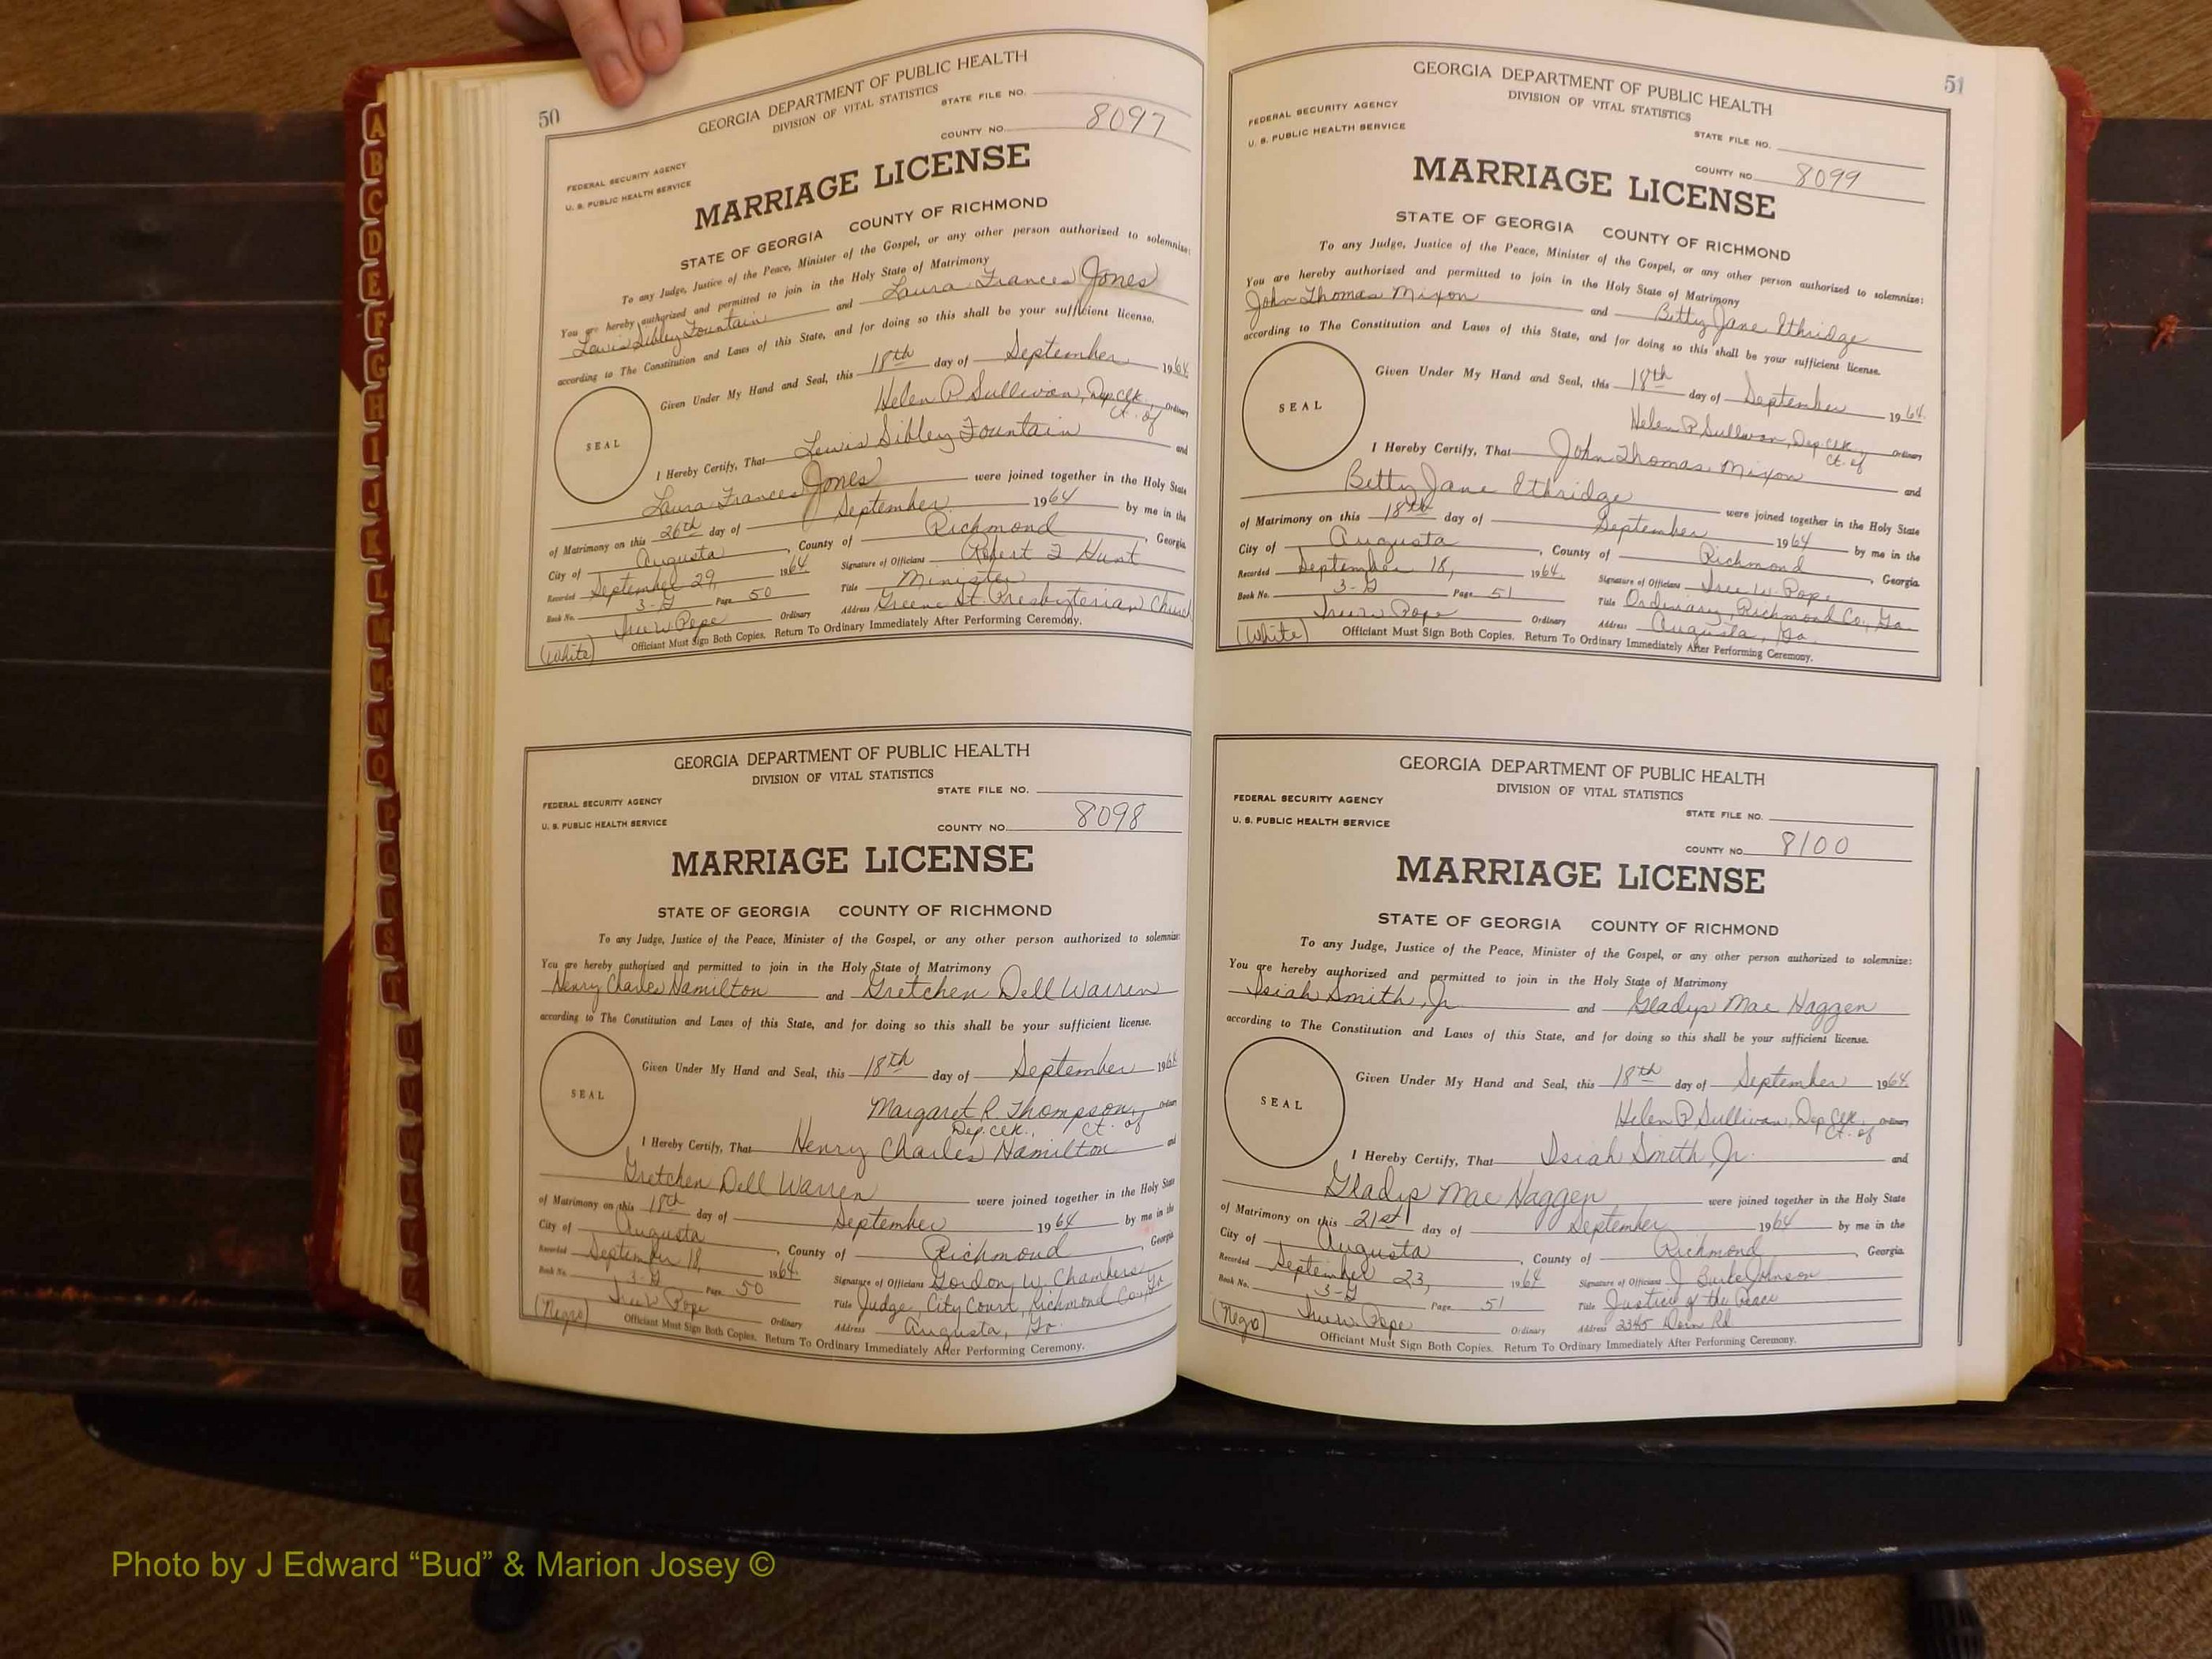 A
B
C
D
E
F
G
H
I
J
K
L
M
N
O
P
Q
R
S
T
50
GEORGIA DEPARTMENT OF PUBLIC HEALTH
DIVISION OF VITAL STATISTICS
STATE FILE NO.
FEDERAL SECURITY AGENCY
U. S. PUBLIC HEALTH SERVICE
COUNTY NO. 8097
MARRIAGE LICENSE
STATE OF GEORGIA COUNTY OF RICHMOND
To any Judge, Justice of the Peace, Minister of the Gospel, or any other person authorized to solemnize:
You are hereby authorized and permitted to join in the Holy State of Matrimony
Lewis Sibley Fountain and Laura Frances Jones
according to The Constitution and Laws of this State, and for doing so this shall be your sufficient license.
Given Under My Hand and Seal, this 18th day of September 1964
Helen P Sullivan, Dep. Clk. Ordinary
Ct. of
SEAL
I Hereby Certify, That Lewis Sibley Fountain and
Laura Frances Jones were joined together in the Holy State
of Matrimony on this 26th day of September 1964 by me in the
City of Augusta, County of Richmond, Georgia
Recorded September 29, 1964 Signature of Officiant Robert I Hunt
Book No. 3-G Page 50 Title Minister
Iree W. Pope Ordinary Address Greene St. Presbyterian Church
(White) Officiant Must Sign Both Copies. Return To Ordinary Immediately After Performing Ceremony.
GEORGIA DEPARTMENT OF PUBLIC HEALTH
DIVISION OF VITAL STATISTICS
STATE FILE NO.
FEDERAL SECURITY AGENCY
U. S. PUBLIC HEALTH SERVICE
COUNTY NO. 8098
MARRIAGE LICENSE
STATE OF GEORGIA COUNTY OF RICHMOND
To any Judge, Justice of the Peace, Minister of the Gospel, or any other person authorized to solemnize:
You are hereby authorized and permitted to join in the Holy State of Matrimony
Henry Charles Hamilton and Gretchen Dell Warren
according to The Constitution and Laws of this State, and for doing so this shall be your sufficient license.
Given Under My Hand and Seal, this 18th day of September 1964
Margaret R. Thompson, Ordinary
Dep. Clk., Ct. of
SEAL
I Hereby Certify, That Henry Charles Hamilton and
Gretchen Dell Warren were joined together in the Holy State
of Matrimony on this 18th day of September 1964 by me in the
City of Augusta, County of Richmond, Georgia
Recorded September 18, 1964 Signature of Officiant Gordon W. Chambers
Book No. 3-G Page 50 Title Judge, City Court, Richmond Co., Ga
Iree W. Pope Ordinary Address Augusta, Ga.
(Negro) Officiant Must Sign Both Copies. Return To Ordinary Immediately After Performing Ceremony.
51
GEORGIA DEPARTMENT OF PUBLIC HEALTH
DIVISION OF VITAL STATISTICS
FEDERAL SECURITY AGENCY
U. S. PUBLIC HEALTH SERVICE
STATE FILE NO.
COUNTY NO. 8099
MARRIAGE LICENSE
STATE OF GEORGIA COUNTY OF RICHMOND
To any Judge, Justice of the Peace, Minister of the Gospel, or any other person authorized to solemnize:
You are hereby authorized and permitted to join in the Holy State of Matrimony
John Thomas Mixon and Betty Jane Ethridge
according to The Constitution and Laws of this State, and for doing so this shall be your sufficient license.
Given Under My Hand and Seal, this 18th day of September 1964.
Helen P Sullivan, Dep. Clk. Ordinary
Ct. of
SEAL
I Hereby Certify, That John Thomas Mixon and
Betty Jane Ethridge were joined together in the Holy State
of Matrimony on this 18th day of September 1964 by me in the
City of Augusta, County of Richmond, Georgia.
Recorded September 18, 1964. Signature of Officiant Iree W. Pope
Book No. 3-G Page 51 Title Ordinary, Richmond Co., Ga.
Iree W. Pope Ordinary Address Augusta, Ga.
(White) Officiant Must Sign Both Copies. Return To Ordinary Immediately After Performing Ceremony.
GEORGIA DEPARTMENT OF PUBLIC HEALTH
DIVISION OF VITAL STATISTICS
FEDERAL SECURITY AGENCY
U. S. PUBLIC HEALTH SERVICE
STATE FILE NO.
COUNTY NO. 8100
MARRIAGE LICENSE
STATE OF GEORGIA COUNTY OF RICHMOND
To any Judge, Justice of the Peace, Minister of the Gospel, or any other person authorized to solemnize:
You are hereby authorized and permitted to join in the Holy State of Matrimony
Isiah Smith, Jr and Gladys Mae Haggen
according to The Constitution and Laws of this State, and for doing so this shall be your sufficient license.
Given Under My Hand and Seal, this 18th day of September 1964
Helen P Sullivan, Dep Clk. Ordinary
Ct. of
SEAL
I Hereby Certify, That Isiah Smith, Jr. and
Gladys Mae Haggen were joined together in the Holy State
of Matrimony on this 21st day of September 1964 by me in the
City of Augusta, County of Richmond, Georgia.
Recorded September 23, 1964 Signature of Officiant J Burke Johnson
Book No. 3-G Page 51 Title Justice of the Peace
Iree W. Pope Ordinary Address Rd
(Negro) Officiant Must Sign Both Copies. Return To Ordinary Immediately After Performing Ceremony.
Photo by J Edward “Bud” & Marion Josey ©